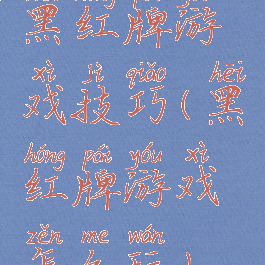 黑红牌游
xì jì qiǎo hēi
戏技巧(黑
hóng pái yóu xì
红牌游戏
zěn me wán
怎么玩)